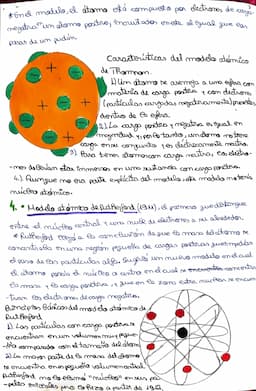 *En el modelo, el átomo está compuesto por electrones de carga
negativa en un átomo positivo, incrustados en este al igual que las
pasas de un pudin.
Características del modelo atómico
de Thomson.
1) Un átomo se asemeja a una esfera con
materia de carga positiva y con electrones
(partículas cargadas negativamente) presentes
dentro de la esfera.
2) La carga positiva y negativa es igual en
magnitud y por lo tanto, un átomo no tiene
carga en su conjunto y es eléctricamente neutro.
3) Para tener átomos con carga neutra, los electro-
-nes deberían estar inmersos en una sustancia con carga positiva.
4.) Aunque no era parte explícita del modelo, este modelo no tenía
núcleo atómico.
4. • Modelo atómico de Rutherford (1911), el primero que distingue
entre el núcleo central y una nube de electrones a su alrededor.
* Rutherford llegó a la conclusión de que la masa del átomo se
concentraba en una región pequeña de cargas positivas que impedían
el paso de las partículas alfa. Sugirió un nuevo modelo en el cual
el átomo poseía el núcleo o centro en el cual se
la masa y la carga positiva, y que en la zona extra nuclear se encuen-
-tran los electrones de carga negativa.
Principios básicos del modelo atómico de
Rutherford
1) Las partículas con carga positiva se
encuentran en un volumen muy peque-
-ño comparado con el tamaño del átomo.
2) La mayor parte de la masa del átomo
se encuentra en ese pequeño volumen central.
Rutherford no lo llamó "núcleo" en sus pa-